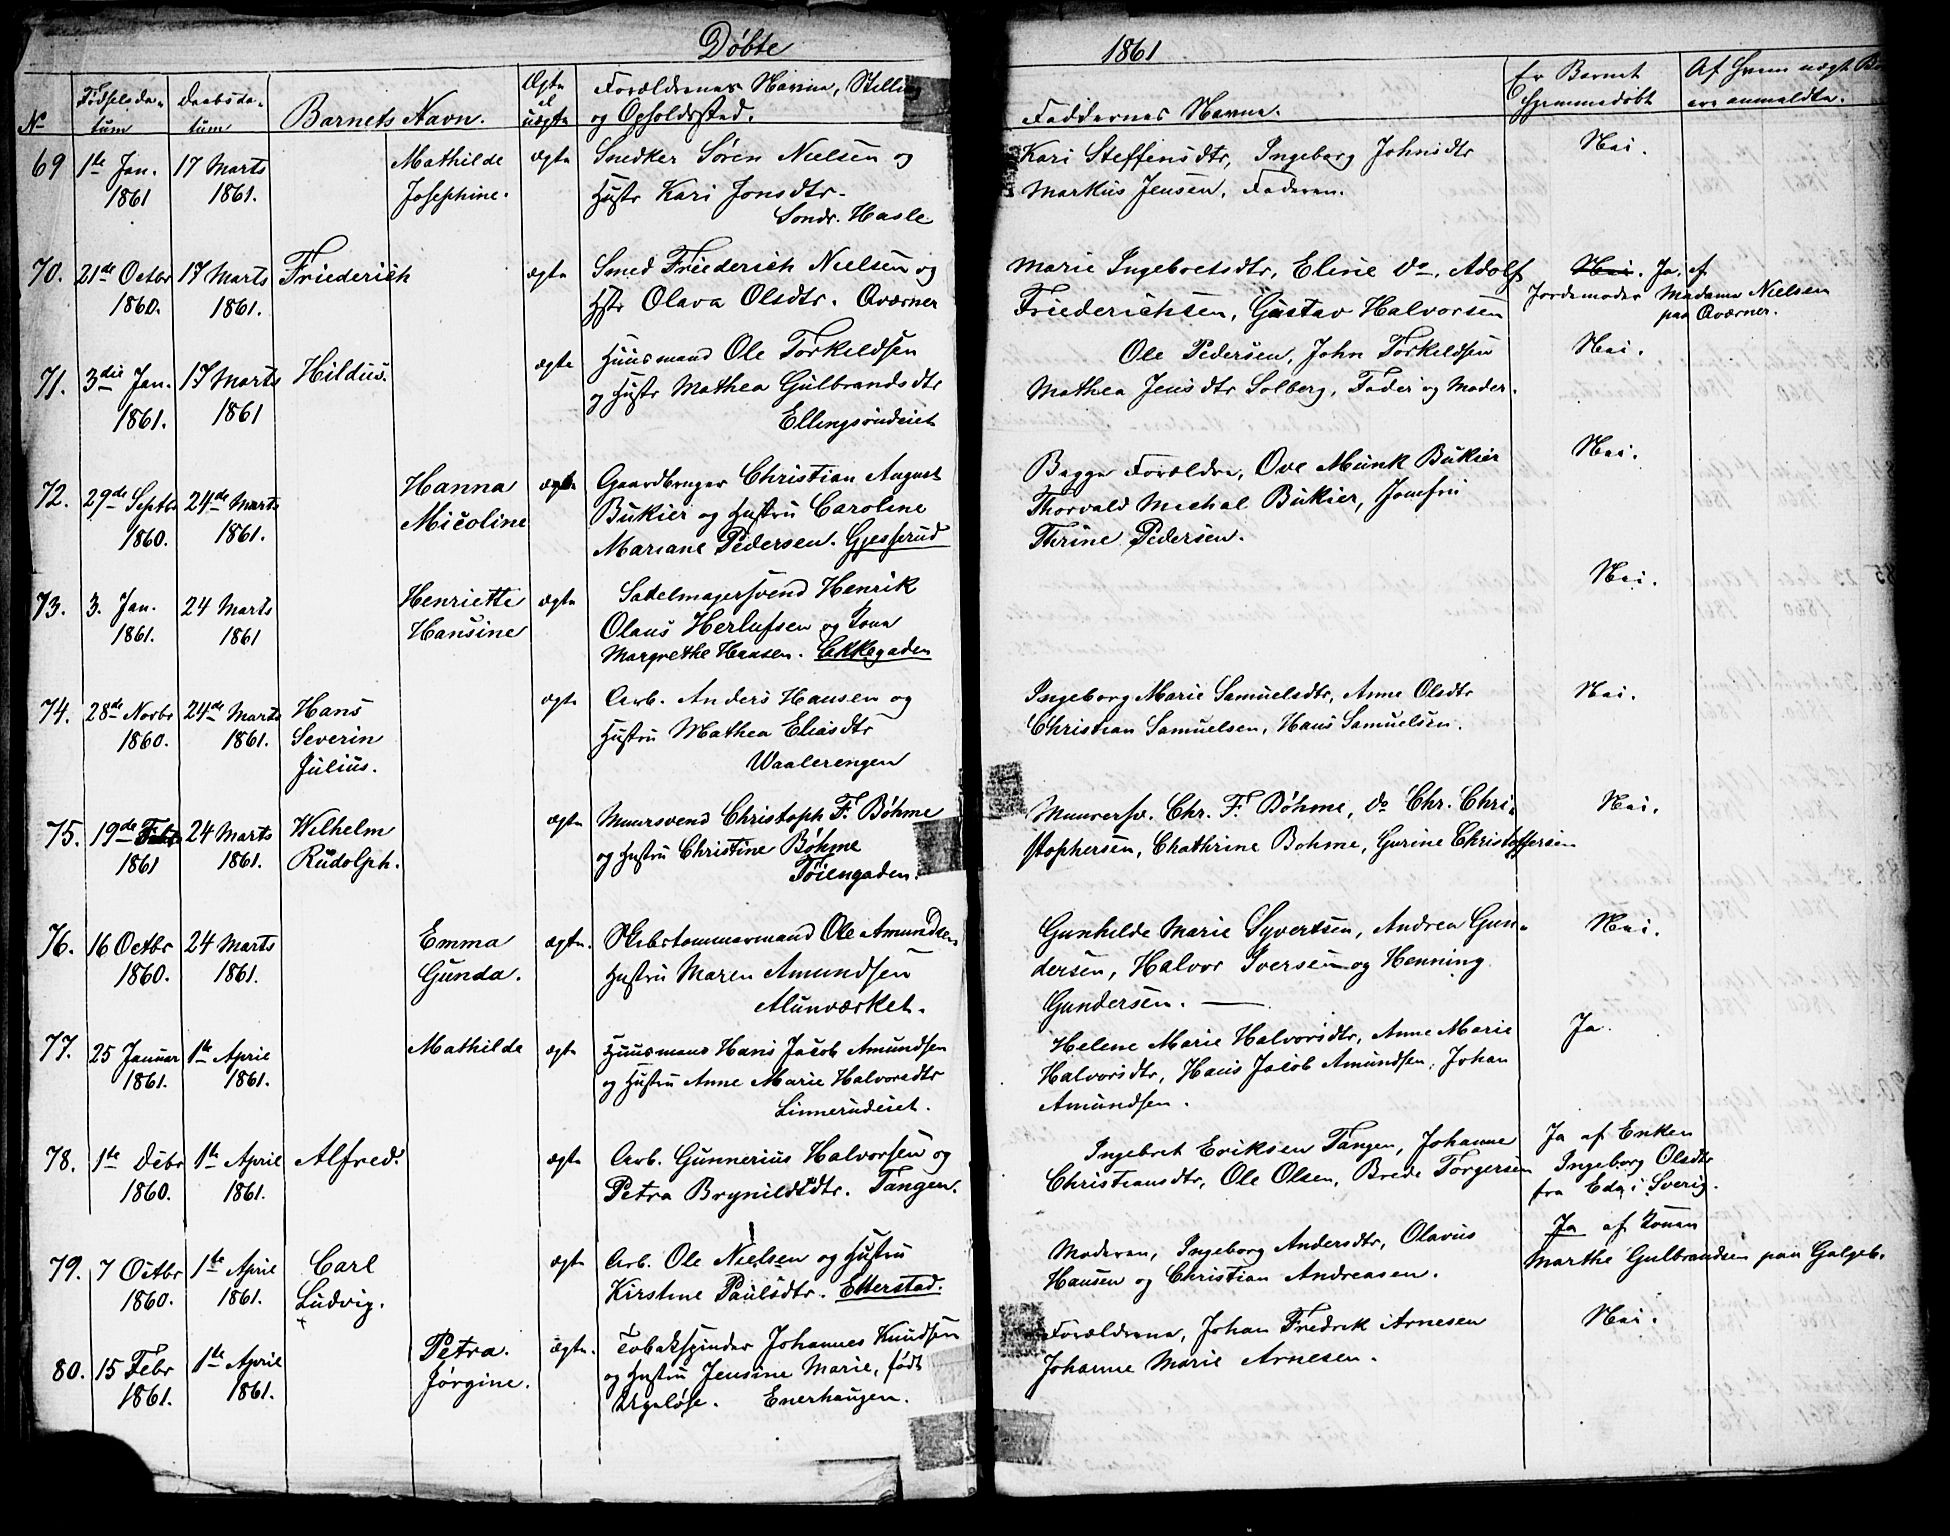 Døbte 1861
No Fødselsda- tum Daabsda- tum Barnets Navn. Ægte el uægte Forældrenes Navne, Stilling og Opholdssted. Faddernes Navne. Er Barnet hjemmedøbt Af hvem uægt B
ere anmeldte.
69 1te Jan. 17 Marts Mathilde ægte Snedker Søren Nielsen og Kari Steffensdtr, Ingeborg Johnsdtr Nei.
1861 1861. Josephine. Hustr Kari Jonsdtr. Markus Jensen, Faderen.
Sondr. Hasle
70. 21de Octbr 17 Marts Friederich ægte Smed Friederich Nielsen og Marie Ingebretsdtr, Eline do. Adolf Nei. Ja, af
1860. 1861. Hstr Olava Olsdtr. Qværner Friederichsen, Gustav Halvorsen Jordemoder Madame Nielsen
paa Qværner.
71. 3die Jan. 17 Marts Hildus. ægte Huusmand Ole Torkeldsen Ole Pedersen, John Torkeldsen Nei.
1861. 1861 og Hustr Mathea Gulbrandsdtr Mathea Jensdtr Solberg, Fader og Moder.
Ellingsrudeiet
72. 29de Septbr 24de Marts Hanna ægte Gaardbruger Christian August Begge Forældre, Ove Munk Bukier Nei.
1860. 1861. Micoline Bukier og Hustru Caroline Thorvald Michal Bukier, Jomfru
Mariane Pedersen. Gjesserud Thrine Pedersen.
73. 3. Jan. 24 Marts Henriette ægte Sadelmagersvend Henrik Nei.
1861. 1861 Hansine Olaus Herlufsen og Kone
Margrethe Hansen. Lakkegaden
74. 28de Novbr 24de Marts Hans ægte Arb. Anders Hansen og Ingeborg Marie Samuelsdtr, Anne Olsdtr Nei.
1860. 1861. Severin Hustru Mathea Eliasdtr Christian Samuelsen, Hans Samuelsen.
Julius. Waalerengen
75. 19de Feb 24 Marts Wilhelm ægte Muursvend Christoph F. Bøhme Muursv. Chr. F. Bøhme, do Chr. Chri-
1861 1861. Rudolph. og Hustru Christine Bøhme stophersen, Chathrine Bohme, Gurine Christoffersen Nei.
Tøiengaden.
76. 16 Octbr 24 Marts Emma ægte. Skibstømmermand Ole Amundsen Gunhilde Marie Syvertsen, Andrea Gun- Nei.
1860. 1861. Gunda. Hustru Maren Amundsen dersen, Halvor Iversen og Henning
Alunværket. Gundersen.
77. 25 Januar 1te April Mathilde ægte Huusmand Hans Jacob Amundsen Helene Marie Halvorsdtr, Anne Marie Ja.
1861. 1861. og Hustru Anne Marie Halvorsdtr Halvorsdtr, Hans Jacob Amundsen, Johan
Linnerudeiet. Amundsen.
78. 1te Dcbr 1te April Alfred. ægte Arb. Gunnerius Halvorsen og Ingebret Eriksen Tangen, Johanne Ja af Enken
1860. 1861. Petra Brynildsdtr. Tangen. Christiansdtr, Ole Olsen, Brede Torgersen Ingeborg Olsdtr
fra Eda i Sverig.
79. 7 Octbr 1te April Carl ægte Arb. Ole Nielsen og Hustru Moderen, Ingeborg Andersdtr, Olavus Ja af Konen
1860. 1861. Ludvig. Kirstine Paulsdtr. Etterstad. Hansen og Christian Andreasen. Marthe Gulbrandsen paa Galgeb.
80. 15 Febr 1te April Petra. ægte. Tobakspinder Johannes Knudsen Forældrene, Johan Fredrik Arnesen Nei.
1861. 1861. Jørgine. og Hustru Jensine Marie, født Johanne Marie Arnesen.
Enerhaugen.